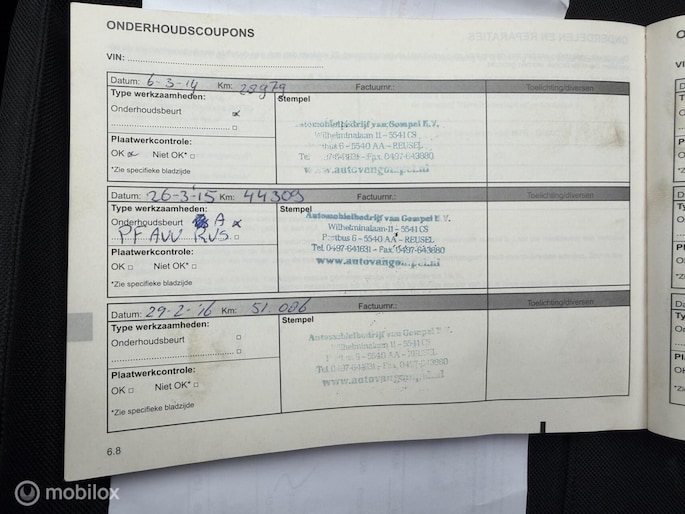 ONDERHOUDSCOUPONS
VIN:
Datum: 6-3-14 Km: 28979 Factuurnr.: Toelichting/diversen
Type werkzaamheden: Stempel
Onderhoudsbeurt
Automobielbedrijf van Gompel B.V.
Wilhelminalaan 11 - 5541 CS
Postbus 6 - 5540 AA - REUSEL
Plaatwerkcontrole:
Tel. 0497-641631 - Fax 0497-643880
OK Niet OK*
www.autovangompel.nl
*Zie specifieke bladzijde
Datum: 26-3-'15 Km: 44309 Factuurnr.: Toelichting/diversen
Type werkzaamheden: Stempel
Onderhoudsbeurt A
Automobielbedrijf van Gompel B.V.
Wilhelminalaan 11 - 5541 CS
PF AVV RVS.
Postbus 6 - 5540 AA - REUSEL
Plaatwerkcontrole:
Tel. 0497-641631 - Fax 0497-643880
OK Niet OK*
www.autovangompel.nl
*Zie specifieke bladzijde
Datum: 29-2-'16 Km: 51.086 Factuurnr.: Toelichting/diversen
Type werkzaamheden: Stempel
Onderhoudsbeurt
Automobielbedrijf van Gompel B.V.
Wilhelminalaan 11 - 5541 CS
Postbus 6 - 5540 AA - REUSEL
Plaatwerkcontrole:
Tel. 0497-641631 - Fax 0497-643880
OK Niet OK*
www.autovangompel.nl
*Zie specifieke bladzijde
6.8
mobilox